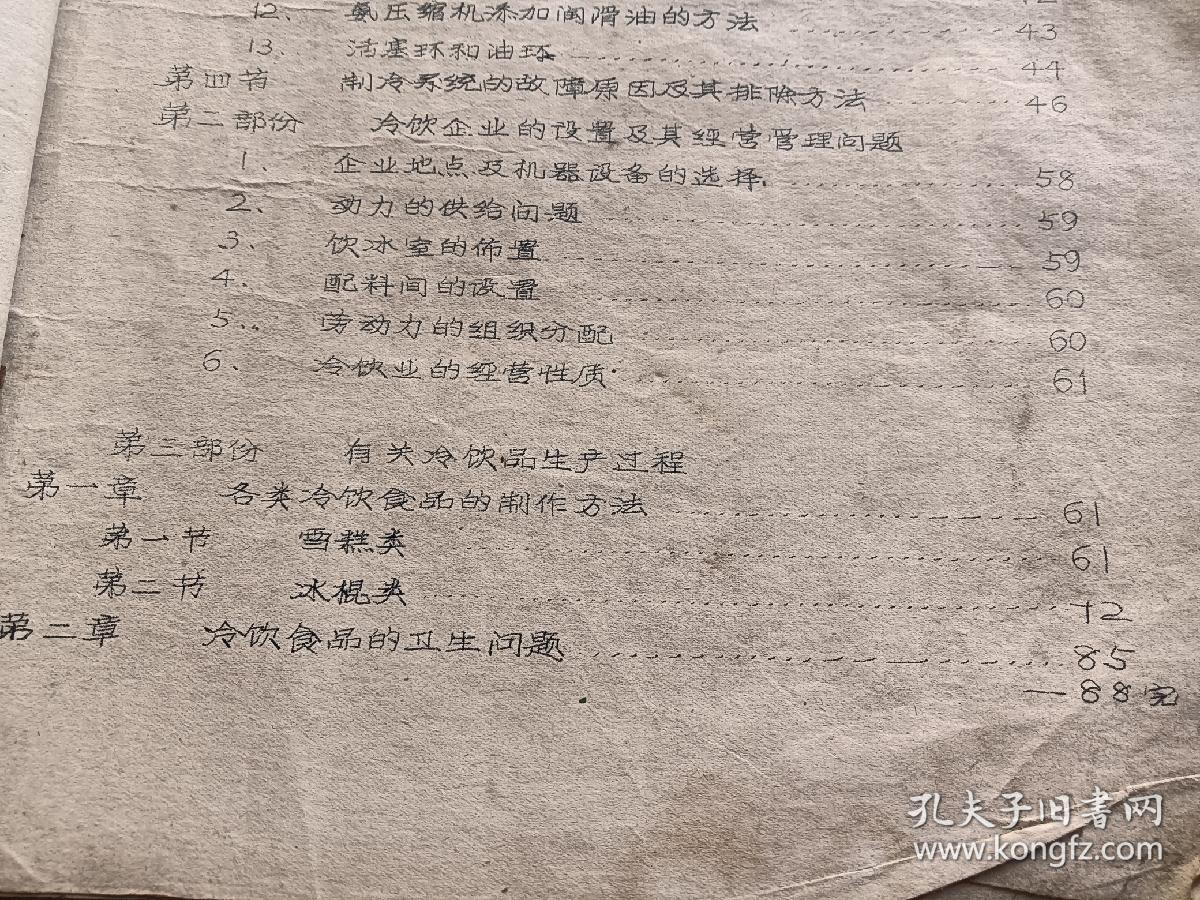 12、 氨压缩机添加润滑油的方法 43
13、 活塞环和油环 44
第四节 制冷系统的故障原因及其排除方法 46
第二部份 冷饮企业的设置及其经营管理问题
1、 企业地点及机器设备的选择 58
2、 动力的供给问题 59
3、 饮冰室的佈置 59
4、 配料间的设置 60
5、 劳动力的组织分配 60
6、 冷饮业的经营性质 61
第三部份 有关冷饮品生产过程
第一章 各类冷饮食品的制作方法 61
第一节 雪糕类 61
第二节 冰棍类 72
第二章 冷饮食品的卫生问题 85
—88完
孔夫子旧书网
www.kongfz.com